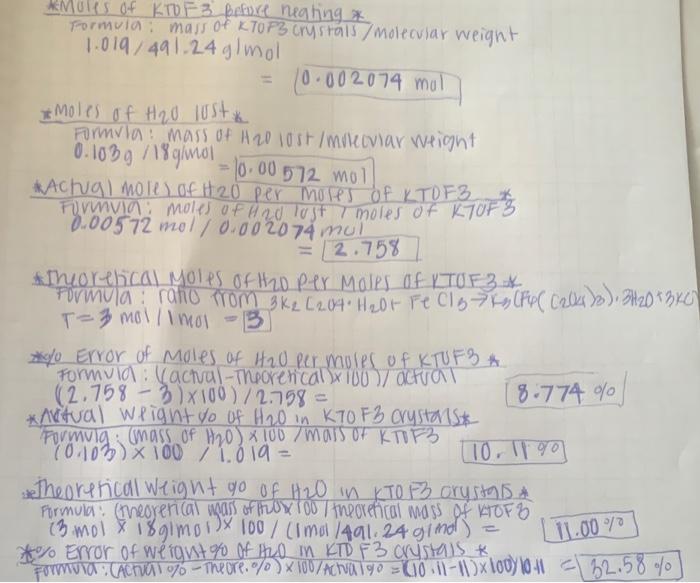 *Moles of KTOF3 Before heating*
Formula: mass of KTOF3 crystals / molecular weight
1.019/491.24 g/mol
= 0.002074 mol
*Moles of H2O lost*
Formula: mass of H2O lost / molecular weight
0.103g /18g/mol
= 0.00572 mol
*Actual moles of H2O per moles of KTOF3*
Formula: moles of H2O lost / moles of KTOF3
0.00572 mol / 0.002074 mol
= 2.758
*Theoretical Moles of H2O per Moles of KTOF3*
Formula: ratio from 3K2C2O4·H2O+ FeCl3 → K3(Fe(C2O4)3)·3H2O+3KCl
T = 3 mol / 1 mol = 3
*% Error of Moles of H2O per moles of KTOF3*
Formula: ((actual-Theoretical)x100)/ actual
(2.758 - 3)x100)/2.758 = 8.774 %
*Actual weight % of H2O in KTOF3 crystals*
Formula: (mass of H2O)x100 / mass of KTOF3
(0.103)x100 /1.019 = 10.11 %
*Theoretical weight % of H2O in KTOF3 crystals*
Formula: (theoretical mass of H2O)x100 / theoretical mass of KTOF3
(3 mol x 18g/mol)x 100 / (1mol/491.24 g/mol) = 11.00 %
*% Error of weight % of H2O in KTOF3 crystals*
Formula: (Actual % - Theore. %) x100/Actual % = (10.11-11)x100/10.11 = 32.58 %